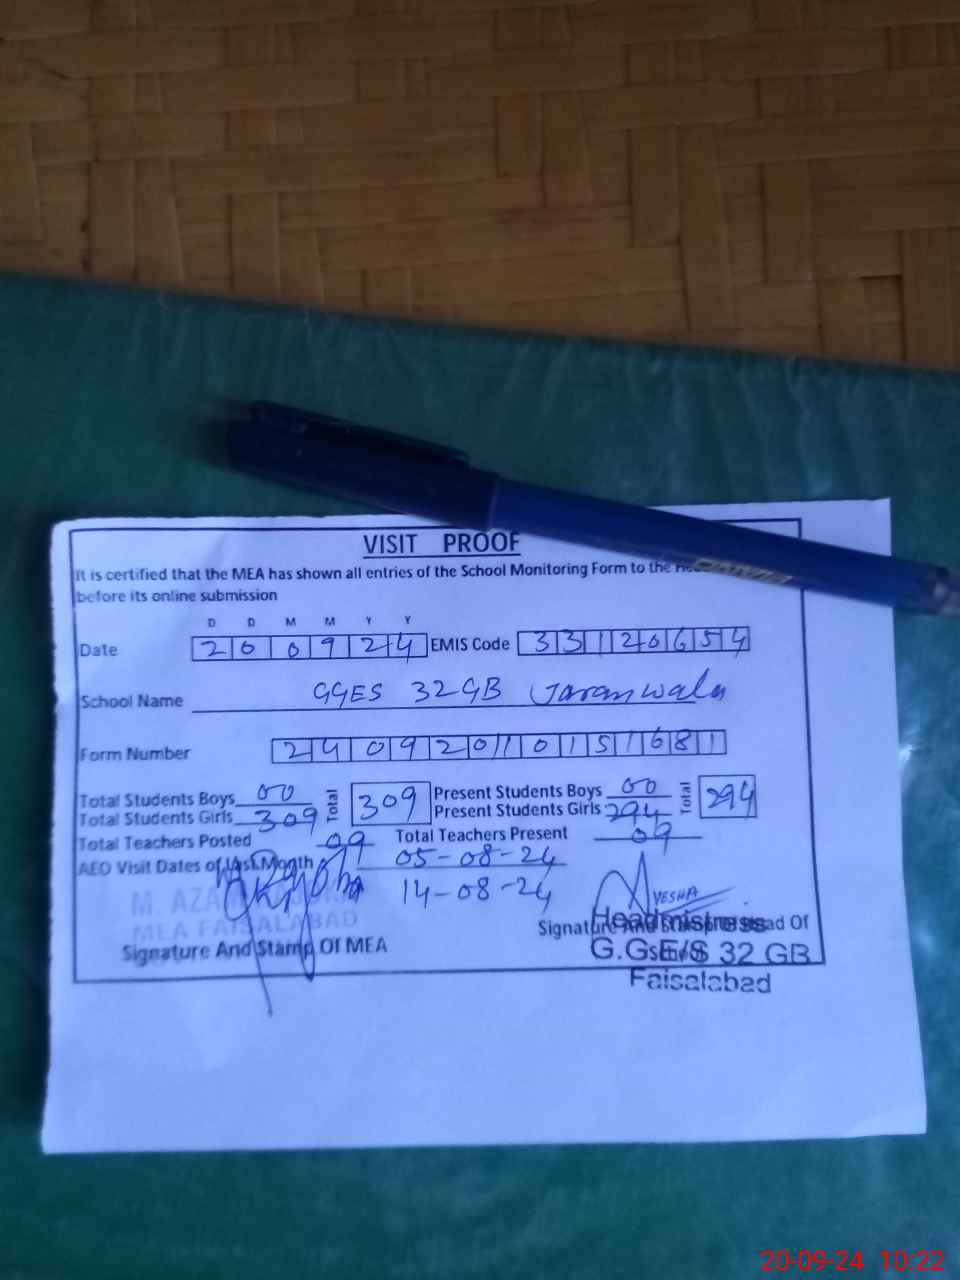 VISIT PROOF
It is certified that the MEA has shown all entries of the School Monitoring Form to the
before its online submission
D D M M Y Y
Date 200924 EMIS Code 33120654
School Name GGES 32GB Jaranwala
Form Number
Total Students Boys 00 Total 309 Present Students Boys 00 Total 294
Total Students Girls 309 Present Students Girls 294
Total Teachers Posted 09 Total Teachers Present 09
AEO Visit Dates of Last Month 05-08-24
14-08-24
AYESHA
M. AZAM
MEA FAISALABAD
Signature And Stamp Of MEA
Signature And Stamp of Head Of
School
Headmistress
G.G.E/S 32 GB
Faisalabad
20-09-24 10:22